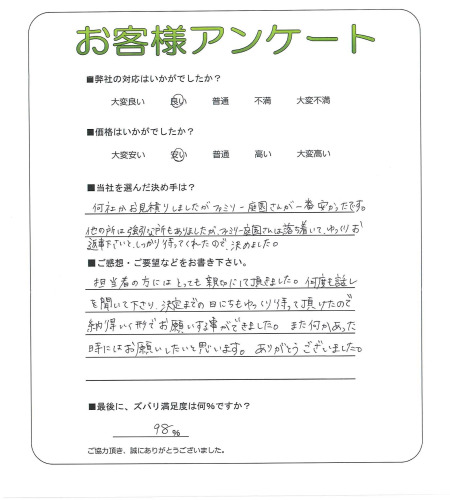 お客様アンケート
■弊社の対応はいかがでしたか？
大変良い 良い 普通 不満 大変不満
■価格はいかがでしたか？
大変安い 安い 普通 高い 大変高い
■当社を選んだ決め手は？
何社かお見積りしましたがファミリー庭園さんが一番安かったです。
他の所は強引な所もありましたが、ファミリー庭園さんは落ち着いて、ゆっくりお
返事下さいと、しっかり待ってくれたので、決めました。
■ご感想・ご要望などをお書き下さい。
担当者の方にはとっても親切にして頂きました。何度も話し
を聞いて下さり、決定までの日にちもゆっくり待って頂けたので
納得いく形でお願いする事ができました。また何かあった
時にはお願いしたいと思います。ありがとうございました。
■最後に、ズバリ満足度は何%ですか？
98%
ご協力頂き、誠にありがとうございました。